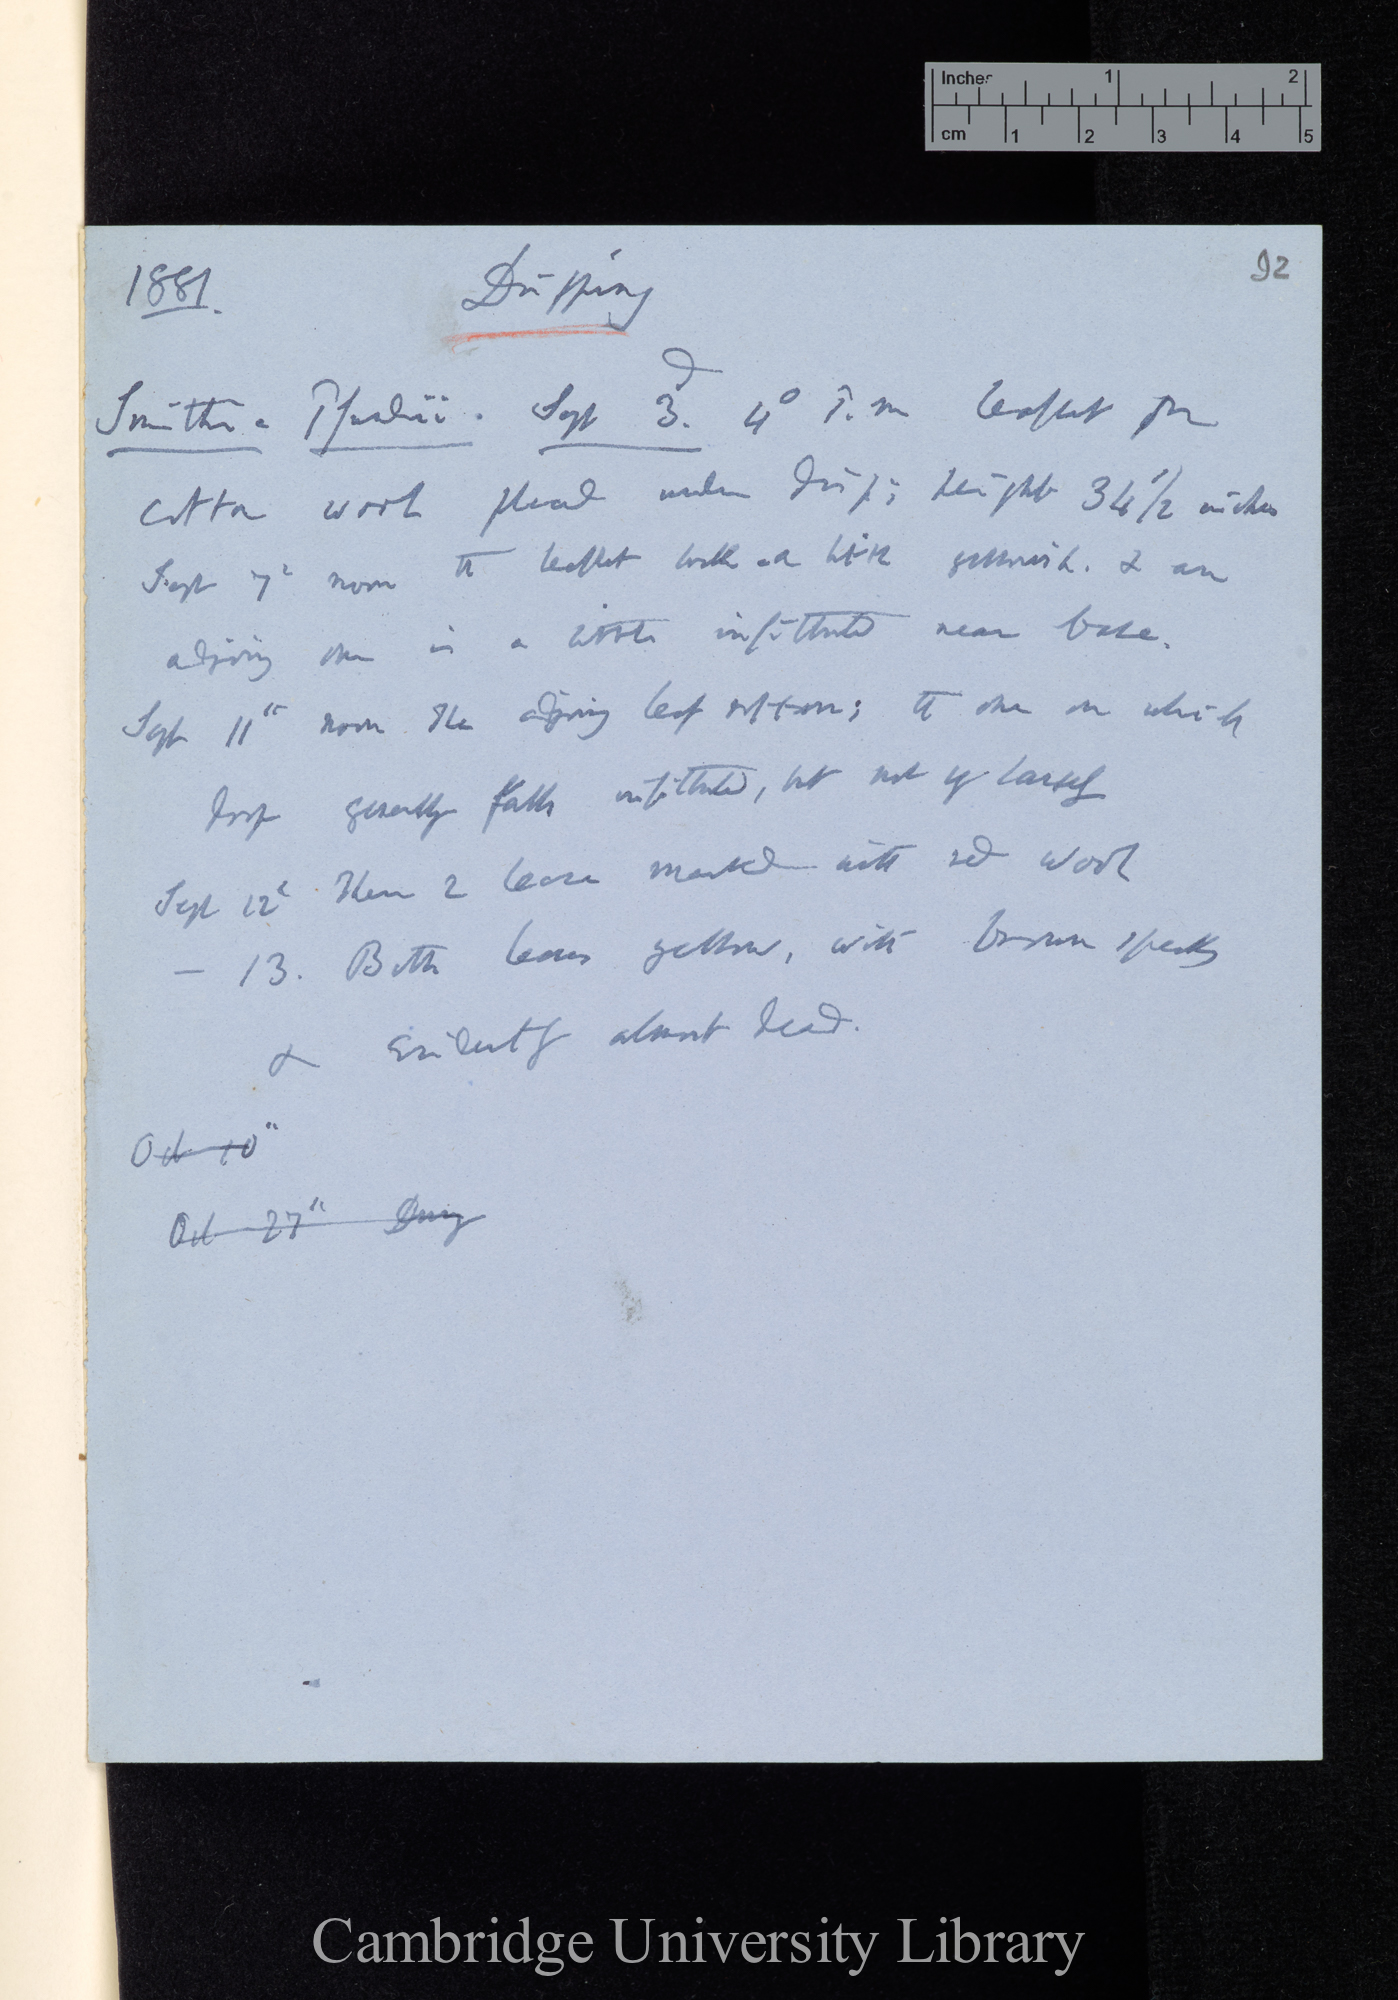 Inches 1 2
cm 1 2 3 4 5
92
1881. Dripping
Smithia Pfundii. Sept 3d. 4° P.m leaflet on
cotton wool placed under drip; height 34 1/2 inches
Sept 7th noon the leaflet with a little yellowish. & an
adjoining one is a little infiltrated near base.
Sept 11th noon The adjoining leaf rotten; the one on which
drop generally falls infiltrated, but not yet largely
Sept 12th These 2 leaves marked with red wool
— 13. Both leaves yellow, with brown specks
& evidently almost dead.
Oct 10th
Oct 27th During
Cambridge University Library